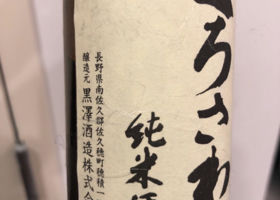 ろさわ
純米
長野県南佐久郡佐久穂町穂積一
醸造元 黒澤酒造株式会